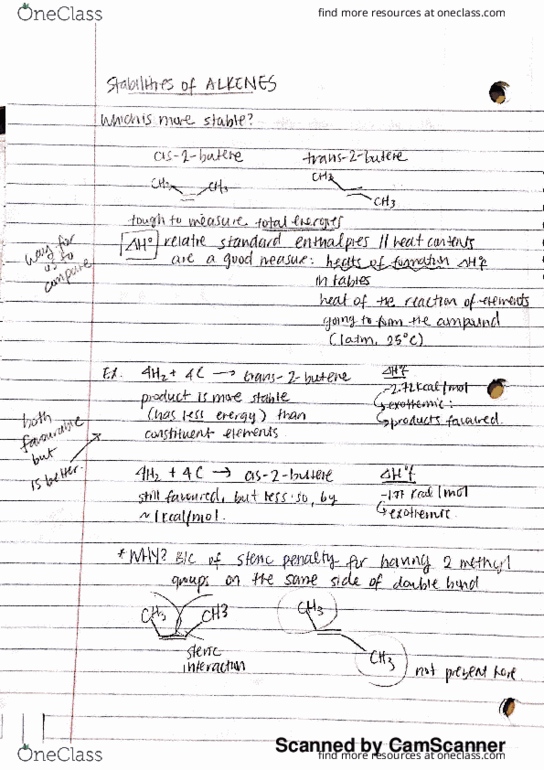 OneClass
find more resources at oneclass.com
Stabilities of ALKENES
Which is more stable?
cis-2-butene trans-2-butene
CH3 CH3 CH3
CH3
tough to measure total energies
ΔH° relative standard enthalpies // heat contents
way for us to compare
are a good measure: heats of formation ΔH°f
in tables
heat of the reaction of elements
going to form the compound
(1atm, 25°C)
Ex. 4H2 + 4C → trans-2-butene ΔH°f
-2.72 kcal/mol
product is more stable exothermic:
(has less energy) than products favoured.
constituent elements.
both favourable but is better.
4H2 + 4C → cis-2-butene ΔH°f
-1.77 kcal/mol
still favoured, but less so, by exothermic.
~1kcal/mol.
*WHY? B/C of steric penalty for having 2 methyl
groups on the same side of double bond
CH3 CH3 CH3
steric interaction
CH3 not present here.
Scanned by CamScanner
OneClass
find more resources at oneclass.com